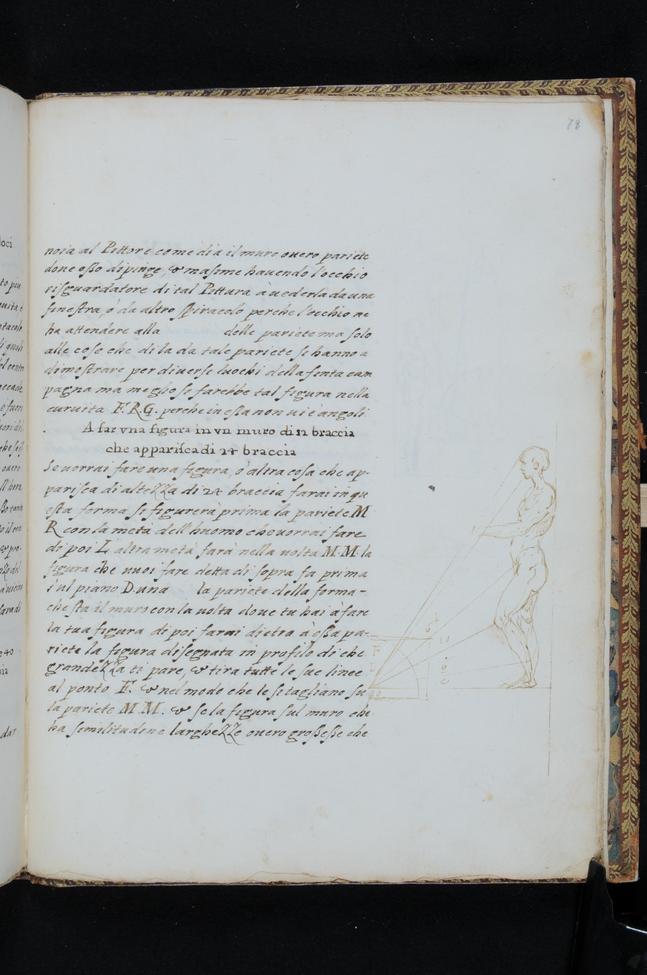 78
noia al Pittore come dia il muro ouero pariete
doue esso dipinge, & masime hauendo l'occhio
risguardatore di tal Pittura à uederla da una
finestra ò da altro spiracolo perche l'occhio nō
ha attendere alla delle pariete ma solo
alle cose che di la da tale pariete si hanno a
dimostrare per diuerse luochi della finta cam
pagna ma meglio se farebbe tal figura nella
curuita F.R.G. perche in essa non ui è angoli
A far vna figura in vn muro di 12 braccia
che apparisca di 24 braccia
Se uorrai fare una figura, ò altra cosa che ap-
parisca di altezza di 24 braccia farai in qu
esta forma si figurera prima la pariete M
R con la metà dell'huomo che uorrai fare
di poi L'altra metà farà nella uolta M.M. la
figura che uuoi fare detta di sopra fa prima
s'ul piano D una la pariete della forma-
che sta il muro con la uolta doue tu hai à fare
la tua figura di poi farai dietra à essa pa-
riete la figura disegnata in profilo di che
grandezza ti pare, & tira tutte le sue linee
al ponto F. & nel modo che le si tagliano su
la pariete M M. & se la figura sul muro che
ha similitudine larghezze ouero grossesse che